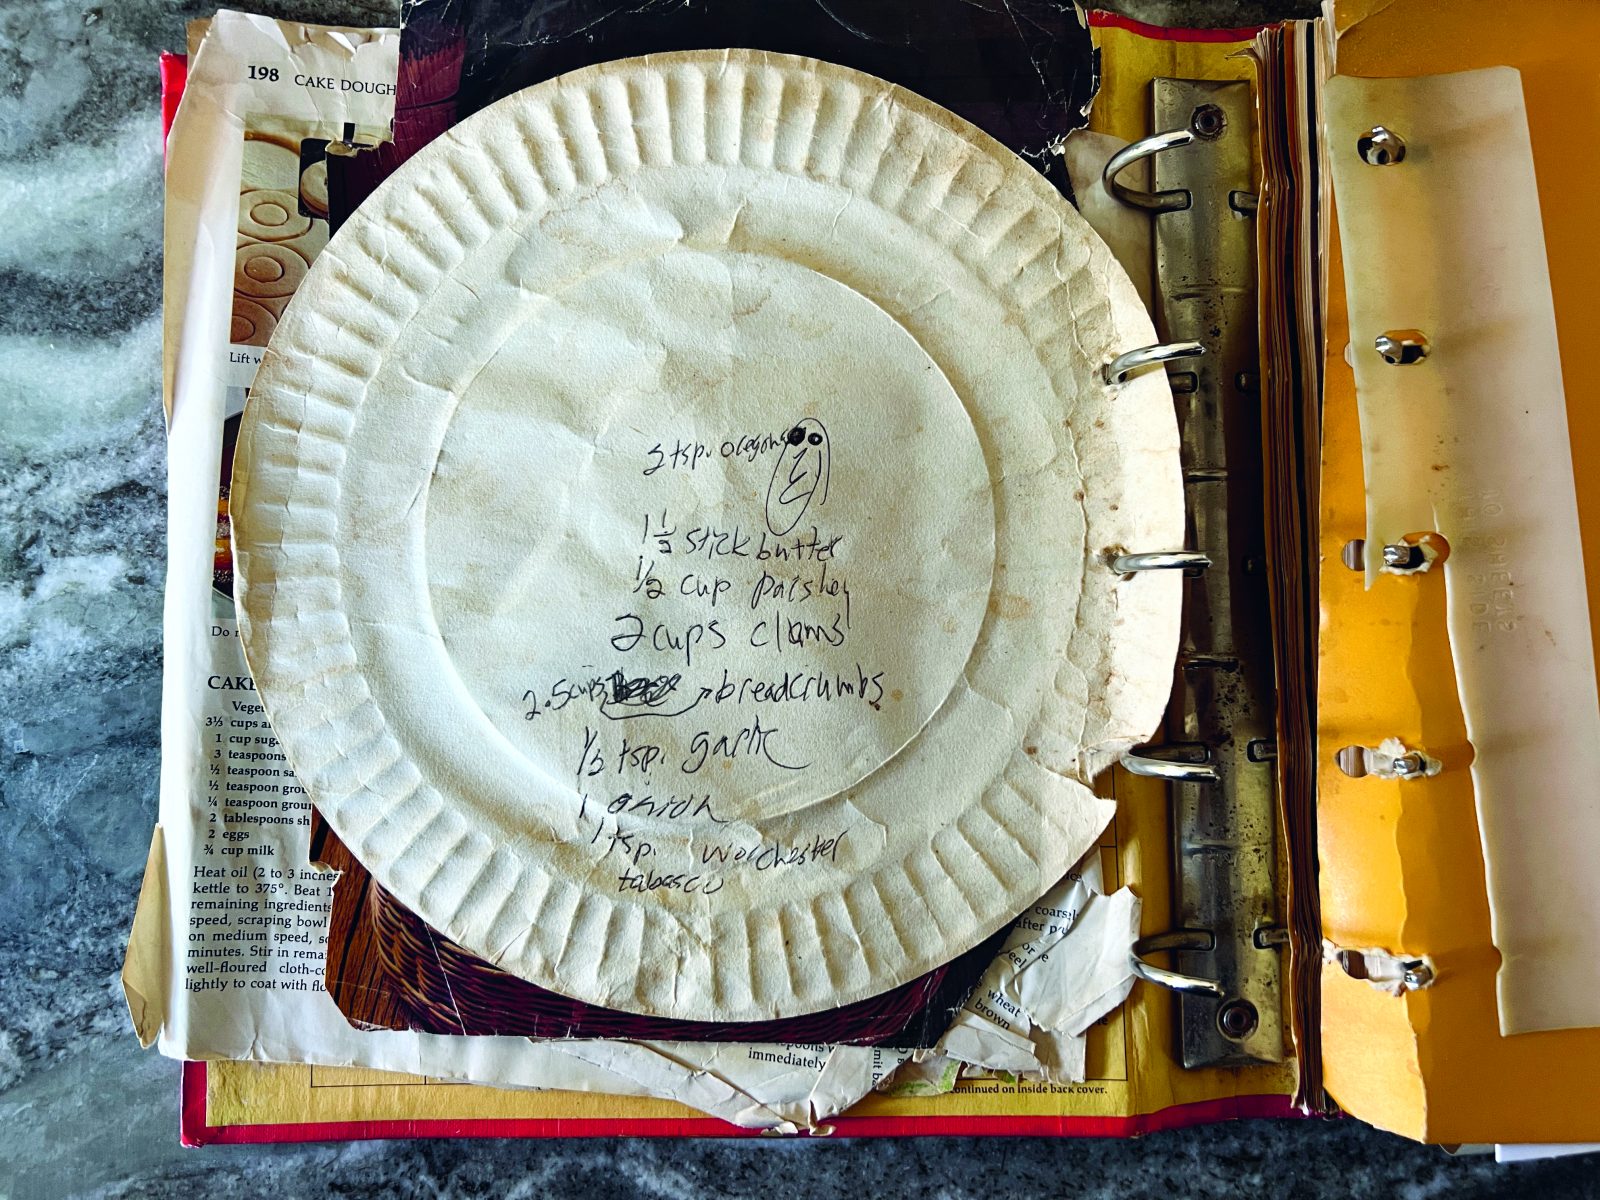 198 CAKE DOUGH
Lift w
Do n
CAKE
Veget
3⅓ cups a
1 cup sug
3 teaspoons
½ teaspoon sa
½ teaspoon grou
¼ teaspoon groun
2 tablespoons sh
2 eggs
¾ cup milk
Heat oil (2 to 3 inches
kettle to 375°. Beat 1
remaining ingredients
speed, scraping bowl
on medium speed, sc
minutes. Stir in rema
well-floured cloth-co
lightly to coat with flo
2 tsp. oregono
1 ½ stick butter
½ cup parsley
2 cups clams
2.5 cups breadcrumbs
½ tsp. garlic
1 onion
1 tsp. worchester
tabasco
coarsel
after p
or
wheat
brown
spoons
immediately
mit b
continued on inside back cover.